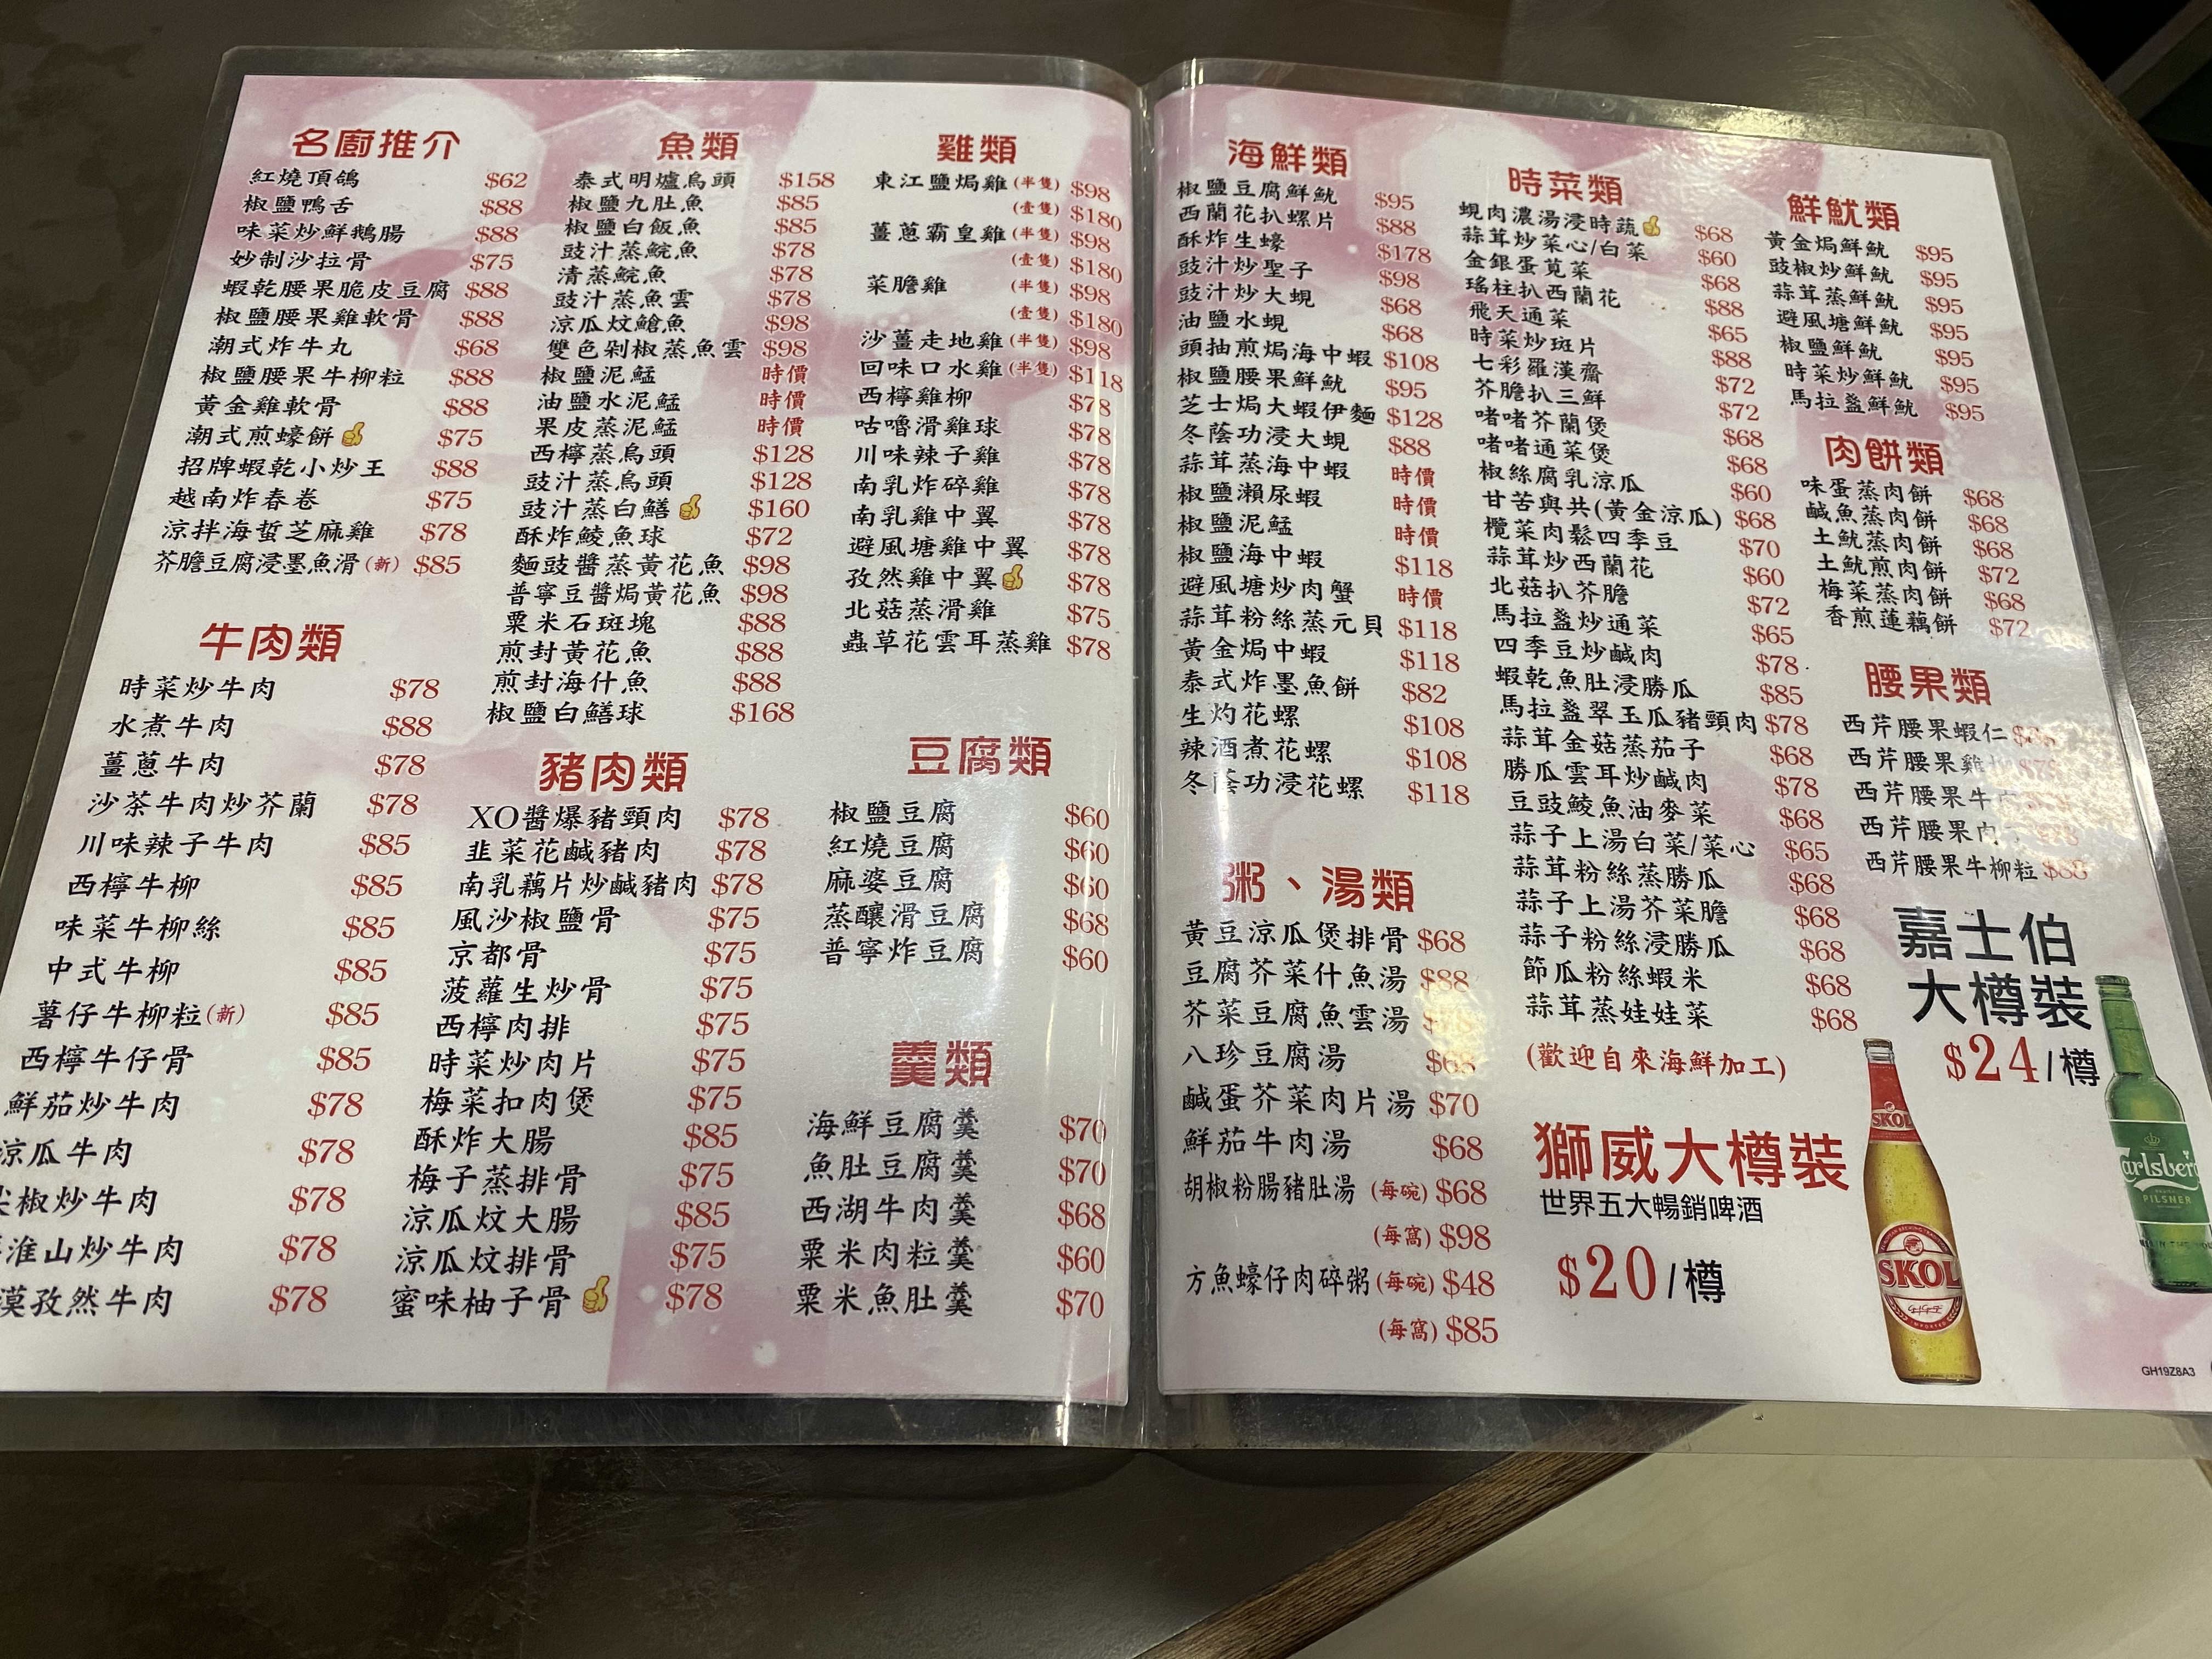 名廚推介
紅燒頂鴿 $62
椒鹽鴨舌 $88
味菜炒鮮鵝腸 $88
妙制沙拉骨 $75
蝦乾腰果脆皮豆腐 $88
椒鹽腰果雞軟骨 $88
潮式炸牛丸 $68
椒鹽腰果牛柳粒 $88
黃金雞軟骨 $88
潮式煎蠔餅 $75
招牌蝦乾小炒王 $88
越南炸春卷 $75
涼拌海蜇芝麻雞 $78
芥膽豆腐浸墨魚滑(新) $85
牛肉類
時菜炒牛肉 $78
水煮牛肉 $88
薑蔥牛肉 $78
沙茶牛肉炒芥蘭 $78
川味辣子牛肉 $85
西檸牛柳 $85
味菜牛柳絲 $85
中式牛柳 $85
薯仔牛柳粒(新) $85
西檸牛仔骨 $85
鮮茄炒牛肉 $78
涼瓜牛肉 $78
尖椒炒牛肉 $78
淮山炒牛肉 $78
漠孜然牛肉 $78
魚類
泰式明爐烏頭 $158
椒鹽九肚魚 $85
椒鹽白飯魚 $85
豉汁蒸鯇魚 $78
清蒸鯇魚 $78
豉汁蒸魚雲 $78
涼瓜炆鯧魚 $98
雙色剁椒蒸魚雲 $98
椒鹽泥鯭 時價
油鹽水泥鯭 時價
果皮蒸泥鯭 時價
西檸蒸烏頭 $128
豉汁蒸烏頭 $128
豉汁蒸白鱔 $160
酥炸鯪魚球 $72
麵豉醬蒸黃花魚 $98
普寧豆醬焗黃花魚 $98
粟米石斑塊 $88
煎封黃花魚 $88
煎封海什魚 $88
椒鹽白鱔球 $168
豬肉類
XO醬爆豬頸肉 $78
韭菜花鹹豬肉 $78
南乳藕片炒鹹豬肉 $78
風沙椒鹽骨 $75
京都骨 $75
菠蘿生炒骨 $75
西檸肉排 $75
時菜炒肉片 $75
梅菜扣肉煲 $75
酥炸大腸 $85
梅子蒸排骨 $75
涼瓜炆大腸 $85
涼瓜炆排骨 $75
蜜味柚子骨 $78
雞類
東江鹽焗雞(半隻) $98
(壹隻) $180
薑蔥霸皇雞(半隻) $98
(壹隻) $180
菜膽雞 (半隻) $98
(壹隻) $180
沙薑走地雞(半隻) $98
回味口水雞(半隻) $118
西檸雞柳 $78
咕嚕滑雞球 $78
川味辣子雞 $78
南乳炸碎雞 $78
南乳雞中翼 $78
避風塘雞中翼 $78
孜然雞中翼 $78
北菇蒸滑雞 $75
蟲草花雲耳蒸雞 $78
豆腐類
椒鹽豆腐 $60
紅燒豆腐 $60
麻婆豆腐 $60
蒸釀滑豆腐 $68
普寧炸豆腐 $60
羹類
海鮮豆腐羹 $70
魚肚豆腐羹 $70
西湖牛肉羹 $68
粟米肉粒羹 $60
粟米魚肚羹 $70
海鮮類
椒鹽豆腐鮮魷 $95
西蘭花扒螺片 $88
酥炸生蠔 $178
豉汁炒聖子 $98
豉汁炒大蜆 $68
油鹽水蜆 $68
頭抽煎焗海中蝦 $108
椒鹽腰果鮮魷 $95
芝士焗大蝦伊麵 $128
冬蔭功浸大蜆 $88
蒜茸蒸海中蝦 時價
椒鹽瀨尿蝦 時價
椒鹽泥鯭 時價
椒鹽海中蝦 $118
避風塘炒肉蟹 時價
蒜茸粉絲蒸元貝 $118
黃金焗中蝦 $118
泰式炸墨魚餅 $82
生灼花螺 $108
辣酒煮花螺 $108
冬蔭功浸花螺 $118
粥、湯類
黃豆涼瓜煲排骨 $68
豆腐芥菜什魚湯 $88
芥菜豆腐魚雲湯
八珍豆腐湯 $68
鹹蛋芥菜肉片湯 $70
鮮茄牛肉湯 $68
胡椒粉腸豬肚湯 (每碗) $68
(每窩) $98
方魚蠔仔肉碎粥(每碗) $48
(每窩) $85
時菜類
蜆肉濃湯浸時蔬 $68
蒜茸炒菜心/白菜 $60
金銀蛋莧菜 $68
瑤柱扒西蘭花 $88
飛天通菜 $65
時菜炒斑片 $88
七彩羅漢齋 $72
芥膽扒三鮮 $72
啫啫芥蘭煲 $68
啫啫通菜煲 $68
椒絲腐乳涼瓜 $60
甘苦與共(黃金涼瓜) $68
欖菜肉鬆四季豆 $70
蒜茸炒西蘭花 $60
北菇扒芥膽 $72
馬拉盞炒通菜 $65
四季豆炒鹹肉 $78
蝦乾魚肚浸勝瓜 $85
馬拉盞翠玉瓜豬頸肉 $78
蒜茸金菇蒸茄子 $68
勝瓜雲耳炒鹹肉 $78
豆豉鯪魚油麥菜 $68
蒜子上湯白菜/菜心 $65
蒜茸粉絲蒸勝瓜 $68
蒜子上湯芥菜膽 $68
蒜子粉絲浸勝瓜 $68
節瓜粉絲蝦米 $68
蒜茸蒸娃娃菜 $68
(歡迎自來海鮮加工)
獅威大樽裝
世界五大暢銷啤酒
$20/樽
鮮魷類
黃金焗鮮魷 $95
豉椒炒鮮魷 $95
蒜茸蒸鮮魷 $95
避風塘鮮魷 $95
椒鹽鮮魷 $95
時菜炒鮮魷 $95
馬拉盞鮮魷 $95
肉餅類
味蛋蒸肉餅 $68
鹹魚蒸肉餅 $68
土魷蒸肉餅 $68
土魷煎肉餅 $72
梅菜蒸肉餅 $68
香煎蓮藕餅 $72
腰果類
西芹腰果蝦仁
西芹腰果雞
西芹腰果牛
西芹腰果肉 $78
西芹腰果牛柳粒 $88
嘉士伯
大樽裝
$24/樽
SKOL
SKOL
Carlsberg
PILSNER
GH19Z8A3